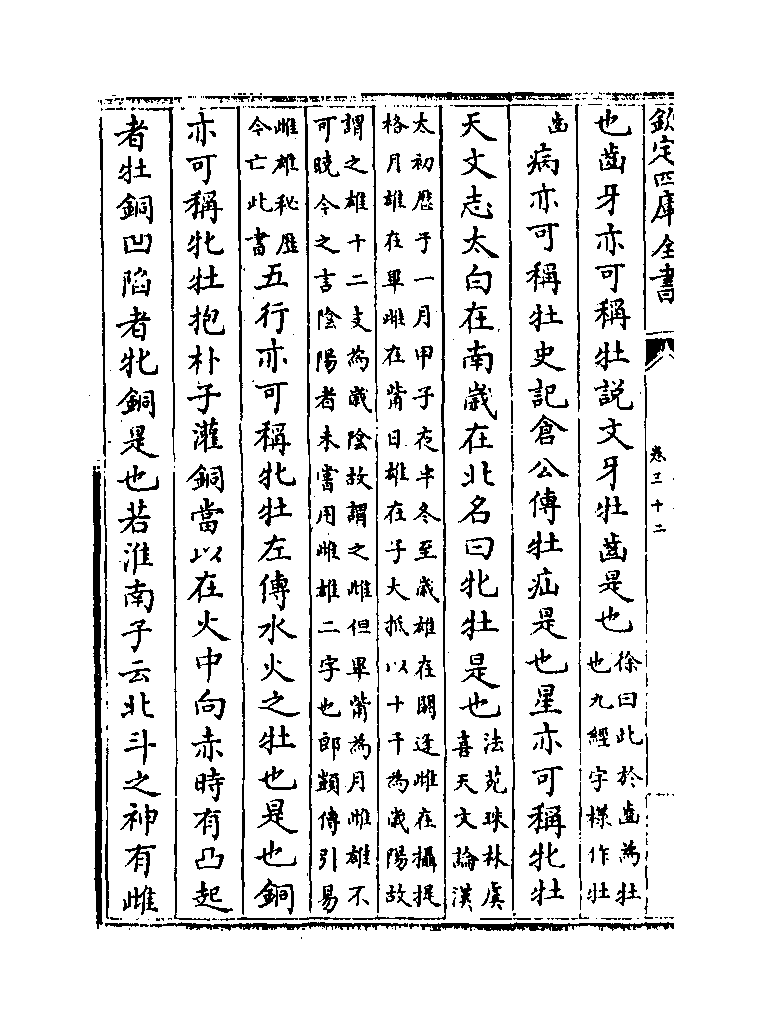 欽定四庫全書
卷三十二
也齒牙亦可稱牡説文牙牡齒是也徐曰此於齒為牡
也九經字樣作牡
齒
病亦可稱牡史記倉公傳牡疝是也星亦可稱牝牡
天文志太白在南歳在北名曰牝牡是也法苑珠林虞
喜天文論漢
太初厯子一月甲子夜半冬至歳雄在閼逢雌在攝提
格月雄在畢雌在觜日雄在子大抵以十干為歳陽故
謂之雄十二支為歳陰故謂之雌但畢觜為月雌雄不
可曉今之言陰陽者未嘗用雌雄二字也郎顗傳引易
雌雄秘厯
今亡此書
五行亦可稱牝牡左傳水火之牡也是也銅
亦可稱牝牡抱朴子灌銅當以在火中向赤時有凸起
者牡銅凹陷者牝銅是也若淮南子云北斗之神有雌